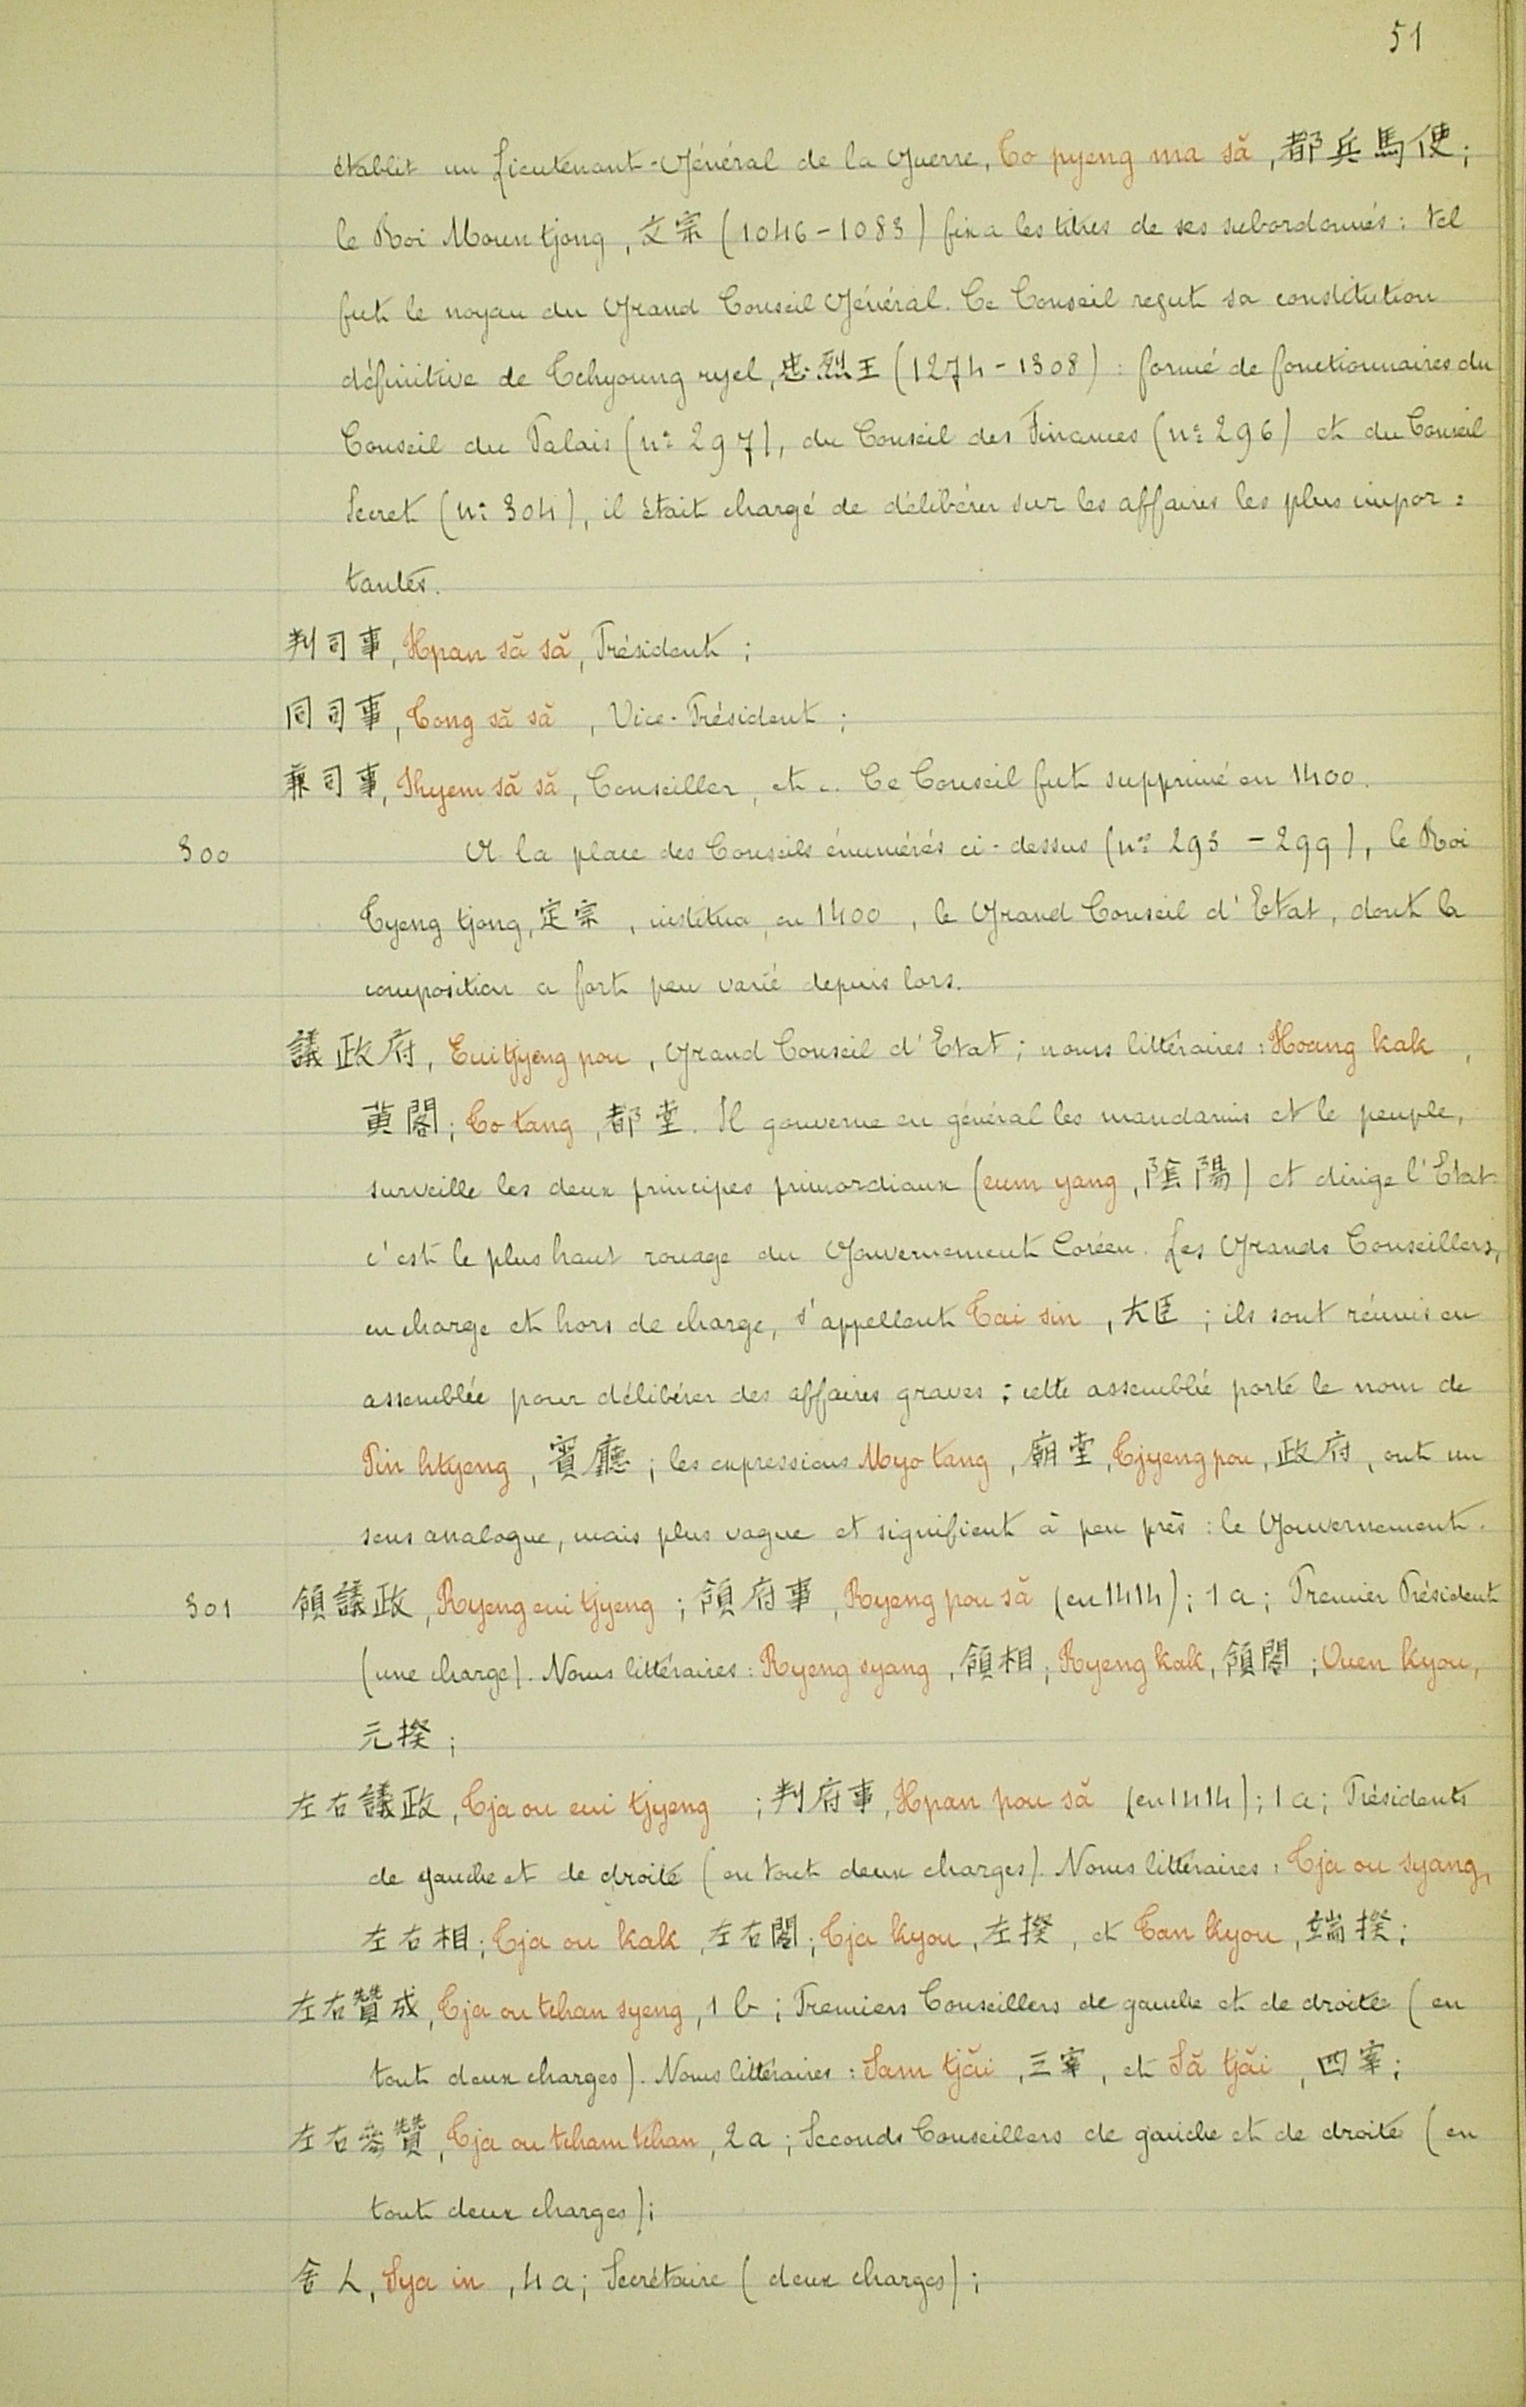 51
établit un Lieutenant-Général de la Guerre, To pyeng ma să, 都兵馬使;
le Roi Moun tjong, 文宗 (1046-1083) fixa les titres de ses subordonnés: tel
fut le noyau du Grand Conseil Général. Ce Conseil reçut sa constitution
définitive de Tchyoung ryel, 忠烈王 (1274-1308): formé de fonctionnaires du
Conseil du Palais (nº 297), du Conseil des Finances (nº 296) et du Conseil
Secret (nº 304), il était chargé de délibérer sur les affaires les plus impor=
tantes.
判司事, Hpan să să, Président;
同司事, Tong să să, Vice-Président;
兼司事, Kyem să să, Conseiller, etc. Ce Conseil fut supprimé en 1400.
300 A la place des Conseils énumérés ci-dessus (nos 293-299), le Roi
Tyeng tjong, 定宗, institua, en 1400, le Grand Conseil d'Etat, dont la
composition a fort peu varié depuis lors.
議政府, Eui tjyeng pou, Grand Conseil d'Etat; noms littéraires: Hoang kak,
黃閣; To tang, 都堂. Il gouverne en général les mandarins et le peuple,
surveille les deux principes primordiaux (eum yang, 陰陽) et dirige l'Etat:
c'est le plus haut rouage du Gouvernement Coréen. Les Grands Conseillers,
en charge et hors de charge, s'appellent Tai sin, 大臣; ils sont réunis en
assemblée pour délibérer des affaires graves; cette assemblée porte le nom de
Pin htyeng, 賓廳; les expressions Myo tang, 廟堂, Tjyeng pou, 政府, ont un
sens analogue, mais plus vague et signifient à peu près: le Gouvernement.
301 領議政, Ryeng eui tjyeng; 領府事, Ryeng pou să (en 1414); 1a; Premier Président
(une charge). Noms littéraires: Ryeng syang, 領相; Ryeng kak, 領閣; Ouen kyou,
元揆;
左右議政, Tja ou eui tjyeng; 判府事, Hpan pou să (en 1414); 1a; Présidents
de gauche et de droite (en tout deux charges). Noms littéraires: Tja ou syang,
左右相; Tja ou kak, 左右閣; Tja kyou, 左揆, et Tan kyou, 端揆;
左右贊成, Tja ou tchan syeng, 1b; Premiers Conseillers de gauche et de droite (en
tout deux charges). Noms littéraires: Sam tjăi, 三宰, et Să tjăi, 四宰;
左右參贊, Tja ou tcham tchan, 2a; Seconds Conseillers de gauche et de droite (en
tout deux charges);
舍人, Sya in, 4a; Secrétaire (deux charges);